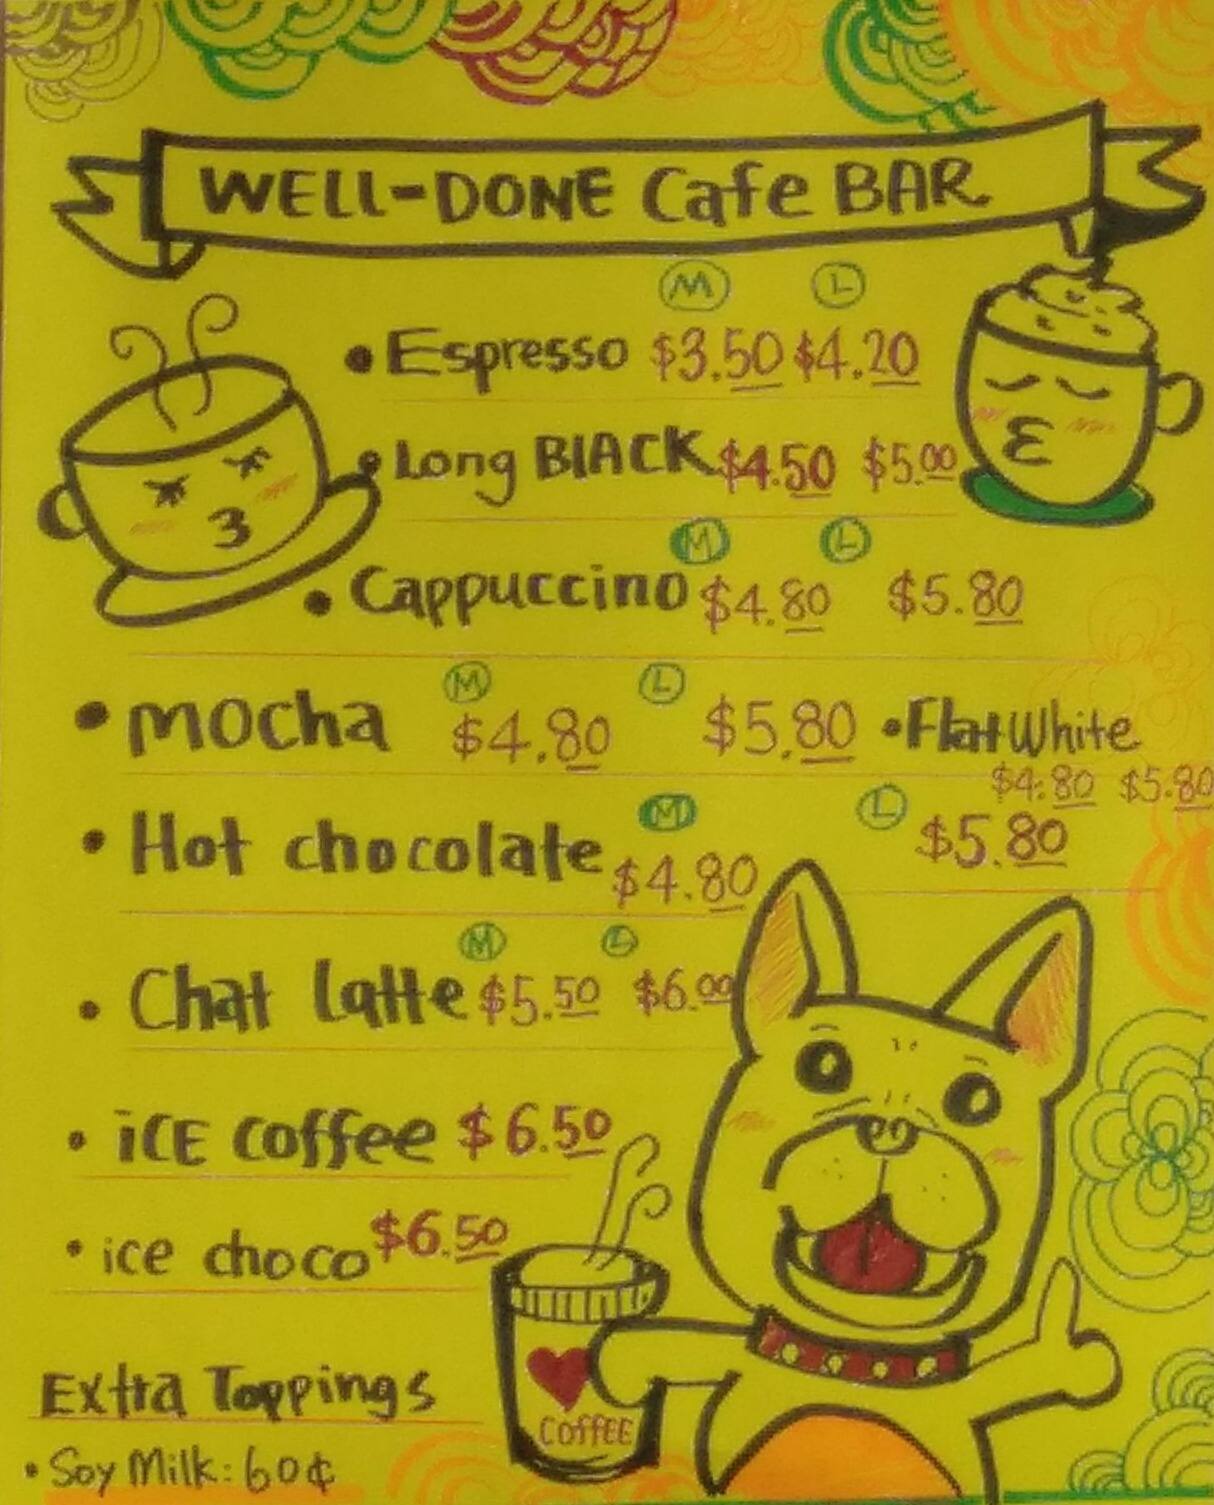 WELL-DONE Cafe BAR
M L
• Espresso $3.50 $4.20
• Long BLACK $4.50 $5.00
M L
• Cappuccino $4.80 $5.80
M L
• mocha $4.80 $5.80 • Flat White
$4.80 $5.80
M L
• Hot chocolate $4.80 $5.80
M L
• Chat Latte $5.50 $6.00
• iCE coffee $6.50
• ice choco $6.50
COFFEE
Extra Toppings
• Soy Milk: 60¢